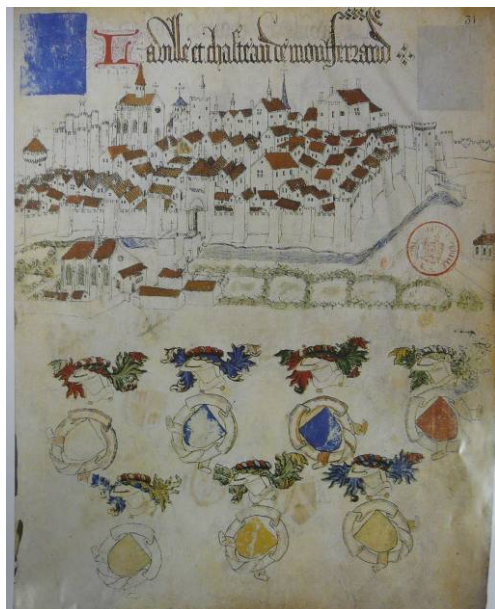 La ville et chasteau de monsferrand
31